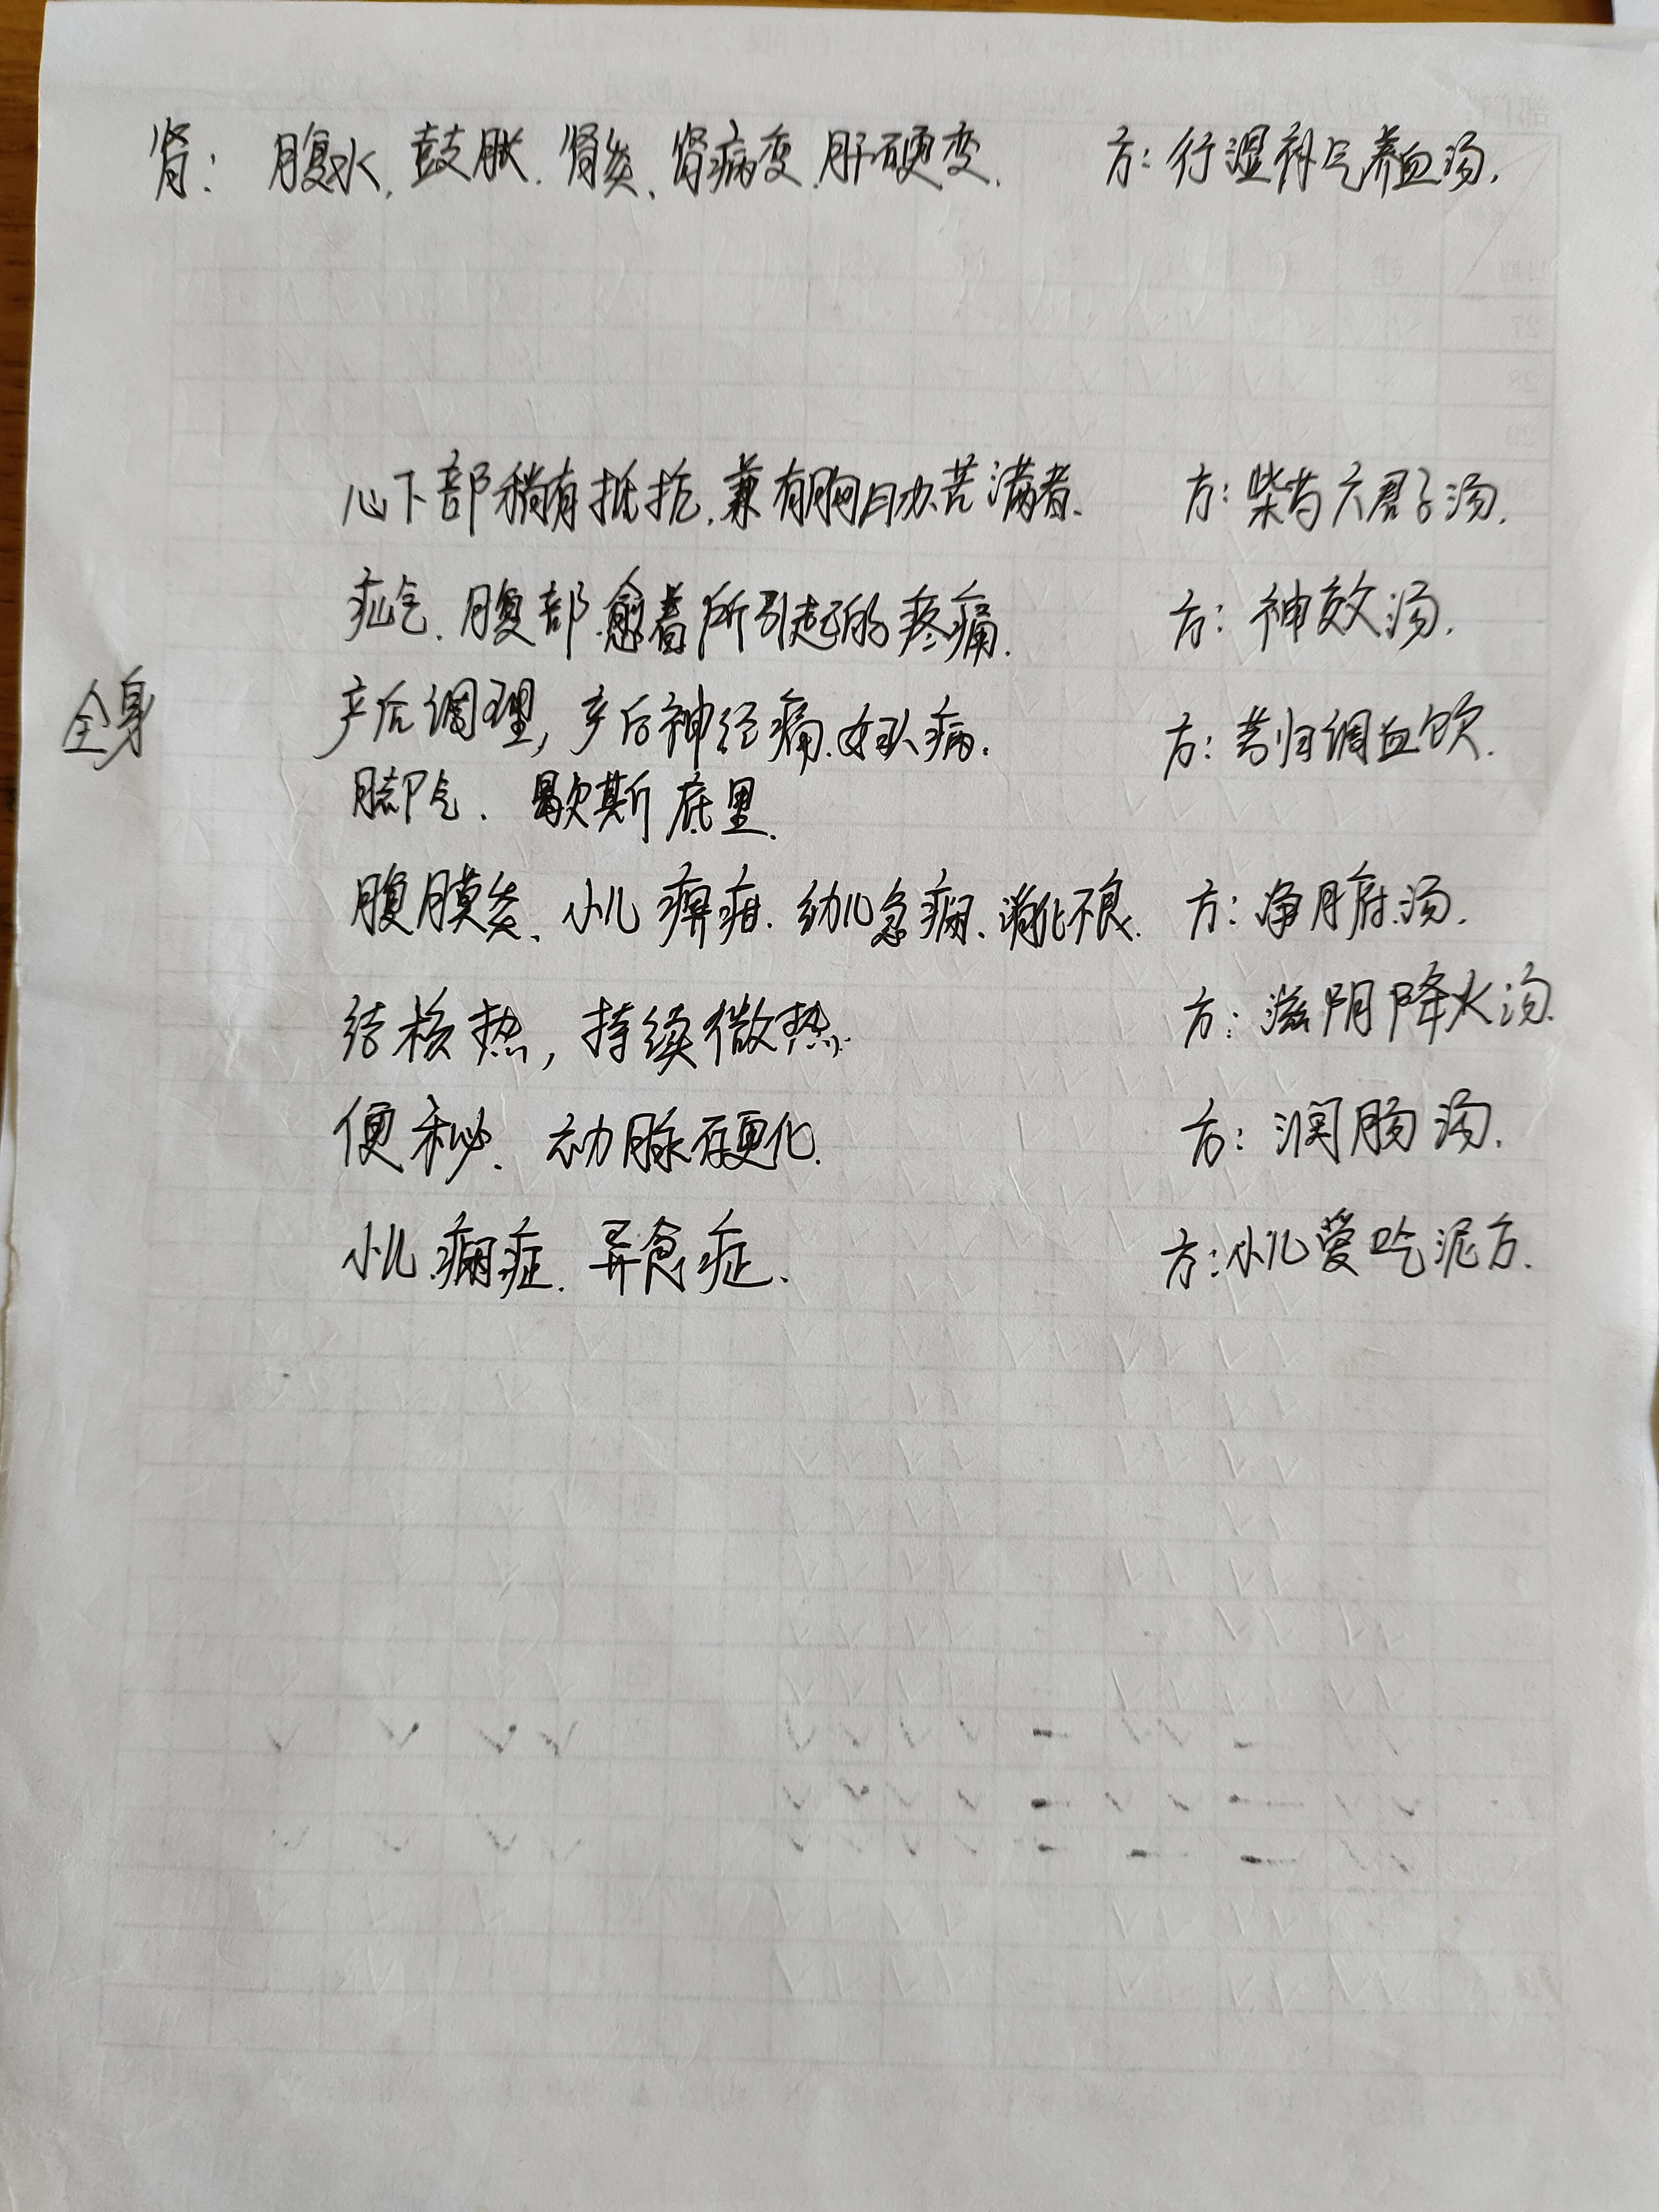 肾: 腹水、鼓胀、肾炎、肾病变、肝硬变. 方: 行湿补气养血汤.
心下部稍有抵抗.兼有胸肋苦满者. 方: 柴芍六君子汤.
疝气. 腹部.愈着所引起的疼痛. 方: 神效汤.
全身 产后调理, 产后神经痛.妇科病. 方: 芎归调血饮.
脚气. 歇斯底里.
腹膜炎、小儿 痹疳. 幼儿急痫、消化不良. 方: 净府汤.
结核热, 持续微热. 方: 滋阴降火汤.
便秘、动脉硬化. 方: 润肠汤.
小儿痫症. 异食症. 方:小儿爱吃泥方.